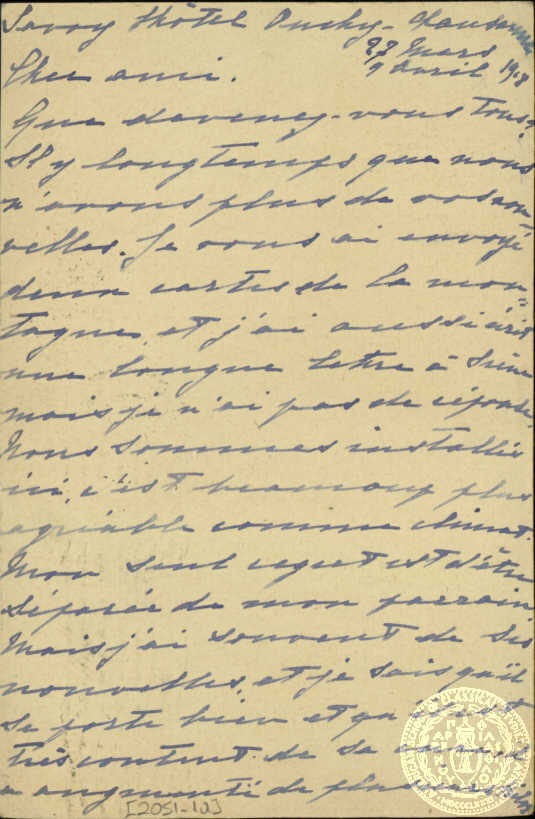 Savoy Hôtel Ouchy-Lausanne
27 Mars
9 Avril 1918
Cher ami.
Que devenez-vous tous?
Il y longtemps que nous
n'avons plus de vos nou
velles. Je vous ai envoyé
deux cartes de la mon=
tagne et j'ai aussi écrit
une longue lettre à
mais je n'ai pas de réponse.
Nous sommes installés
ici, c'est beaucoup plus
agréable comme climat.
Mon seul regret est d'être
séparée de mon parrain
Mais j'ai souvent de ses
nouvelles, et je sais qu'il
se porte bien et qu'il est
très content de sa
a augmenté de plusieurs
[2051-10]